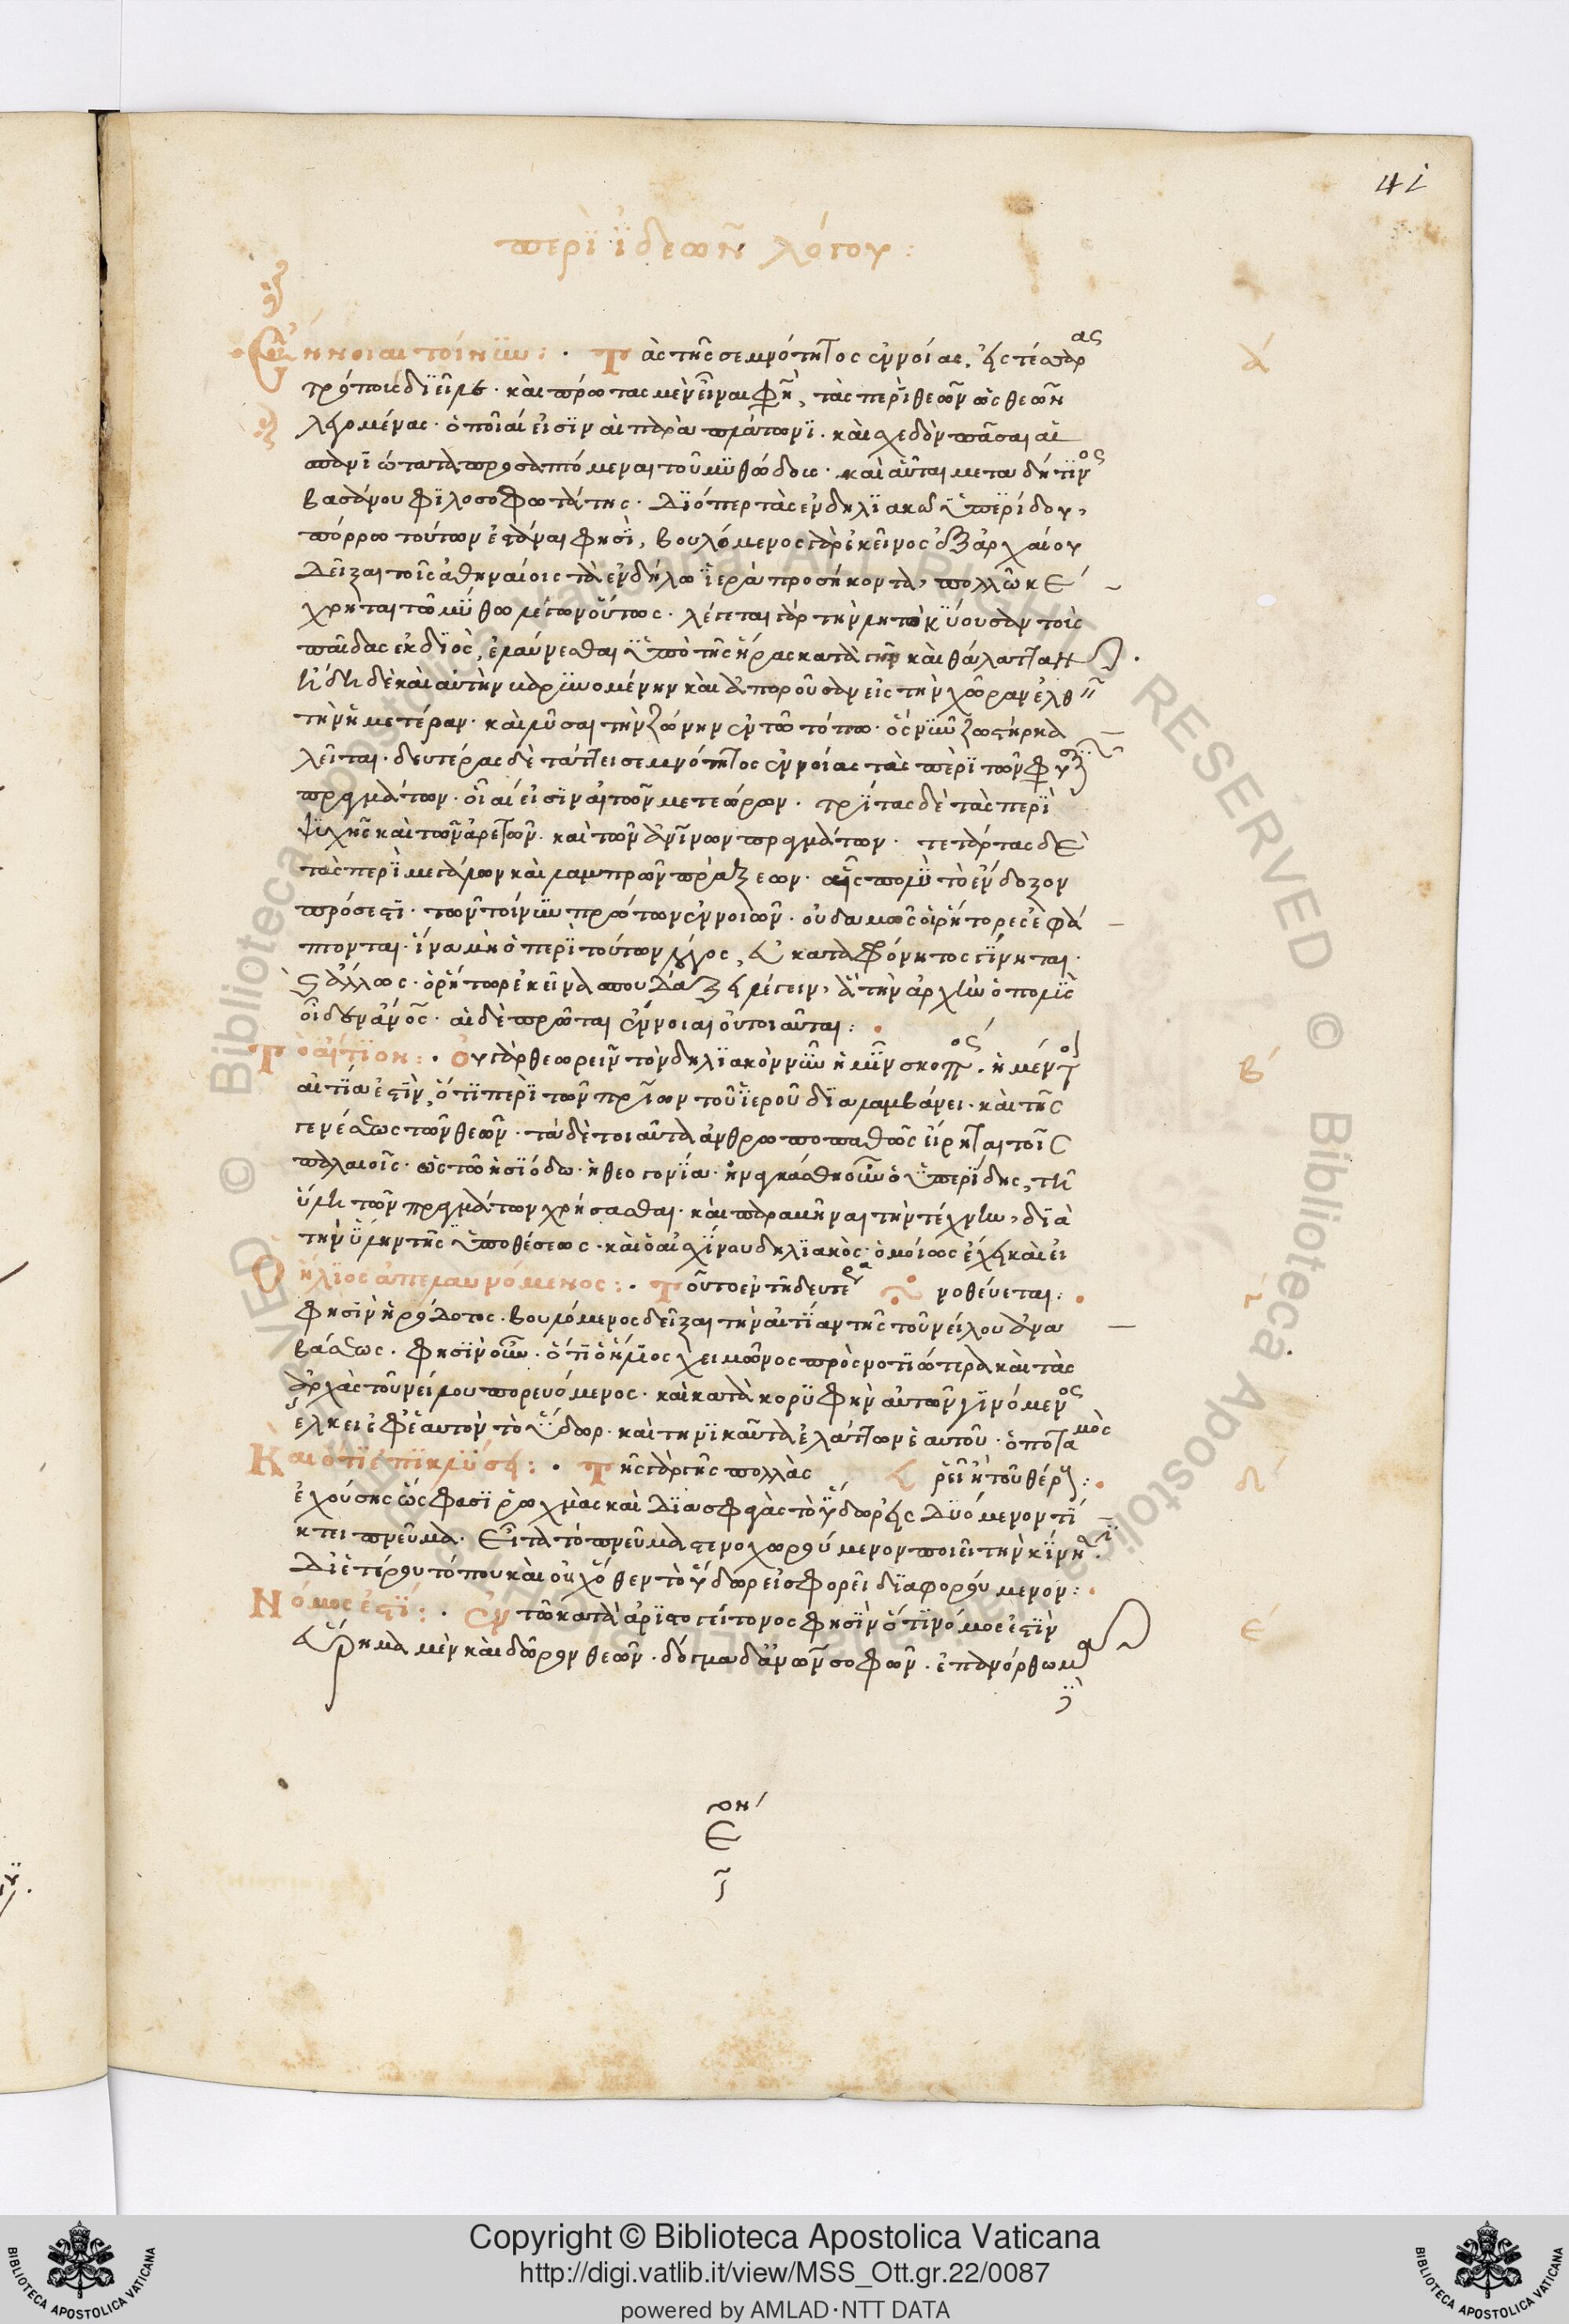 41
περὶ ἰδεῶν λόγου:
Ἔννοιαι τοίνυν: · Τὰς τῆς σεμνότητος ἐννοίας, εἰς τέσσαρας
τρόπους διεῖλε · καὶ πρώτας μὲν εἶναι φησὶ, τὰς περὶ θεῶν ὡς θεῶν
λεγομένας · ὁποῖαί εἰσιν αἱ παρὰ πλάτωνι · καὶ σχεδὸν πᾶσαι αἱ
προσαπτόμεναι τοῦ μυθώδους · καὶ αὗται μετὰ δή τινος
βασάνου φιλοσοφωτάτης · Διόπερ τὰς ἐν δηλιακῶ ὑπερίδου,
πόρρω τούτων ἑστάναι φησὶ, βουλόμενος γὰρ ἐκεῖνος ἐξ ἀρχαίου
Δεῖξαι τοῖς ἀθηναίοις τὰ ἐν δήλω ἱερὰ προσήκοντα, πολλῶ κέ
χρηται τῶ μύθω λέγων οὕτως · λέγεται γὰρ τὴν λητὼ κύουσαν τοὺς
παῖδας ἐκ διὸς, ἐλαύνεσθαι ὑπὸ τῆς ἥρας κατὰ γῆν καὶ θάλατταν ·
ἤδη δὲ καὶ αὐτὴν βαρυνομένην καὶ ἀποροῦσαν εἰς τὴν χώραν ἐλθεῖν
τὴν ἡμετέραν · καὶ λῦσαι τὴν ζώνην ἐν τῶ τόπω · ὃς νῦν ζωστὴρ κα
λεῖται · δευτέρας δὲ τάττει σεμνότητος ἐννοίας τὰς περὶ τῶν φυσικῶν
πραγμάτων · οἷαί εἰσιν αἱ τῶν μετεώρων · τρίτας δὲ τὰς περὶ
ψυχῆς καὶ τῶν ἀρετῶν · καὶ τῶν ἀνίνων πραγμάτων · τετάρτας δὲ
τὰς περὶ μεγάλων καὶ λαμπρῶν πράξεων · αἷς πολὺ τὸ ἔνδοξον
πρόσεστι · τῶν τοίνυν πρώτων ἐννοιῶν · οὐδαμῶς οἱ ῥήτορες ἐφά
πτονται · ἵνα μὴ ὁ περὶ τούτων λόγος, εὐκαταφρόνητος γίνηται ·
ὁ ῥήτωρ ἐκεῖνα σπουδάζει λέγειν, ἃ τὴν ἀρχὴν ὁ πολὺς
οἶδεν ἄνος · αἱ δὲ πρῶται ἔννοιαι οὐ τοιαῦται: ·
Τὸ αἴτιον: · Οὐ γὰρ θεωρεῖν τὸν δηλιακὸν νῦν ἡμῖν σκοπός · ἡ μέντοι
αἰτία ἐστὶν, ὅτι περὶ τῶν πρίων τοῦ ἱεροῦ διαλαμβάνει · καὶ τῆς
γενέσεως τῶν θεῶν · τὰ δὲ τοιαῦτα ἀνθρωποπαθῶς εἴρηται τοῖς
παλαιοῖς · ὡς τῶ ἡσιόδω · ἡ θεογονία · ἠναγκάσθη οὖν ὁ ὑπερίδης, τῆ
ὕλη τῶν πραγμάτων χρήσασθαι · καὶ παραμῆναι τὴν τέχνην, διὰ
τὴν ὕλην τῆς ὑποθέσεως · καὶ ὁ αἰσχίνου δηλιακὸς · ὁμοίως ἔχει καὶ εἰ
νοθεύεται: ·
Ὁ ἥλιος ἀπελαυνόμενος: · Τοῦτο ἐν τῆ δευτέρα
φησὶν ἡρόδοτος · βουλόμενος δεῖξαι τὴν αἰτίαν τῆς τοῦ νείλου ἀνα
βάσεως · φησὶν οὖν · ὅτι ὁ ἥλιος χειμῶνος πρὸς νοτιώτερα καὶ τὰς
ἀρχὰς τοῦ νείλου πορευόμενος · καὶ κατὰ κορυφὴν αὐτῶν γινόμενος
ἕλκει ἐφ' ἑαυτὸν τὸ ὕδωρ · καὶ τηνικαῦτα ἐλάττων ἑαυτοῦ · ὁ ποταμὸς
ῥεῖ ἢ τοῦ θέρους: ·
Καὶ ὅτι ἐπικλύσει: · Τῆς γὰρ γῆς πολλὰς
ἐχούσης ὥς φασι ῥωχμὰς καὶ διασφαγὰς τὸ ὕδωρ εἰς δυόμενον τί
κτει πνεῦμα · Εἶτα τὸ πνεῦμα στενοχωρούμενον ποιεῖ τὴν κίνησιν ·
Δι' ἑτέρου τόπου καὶ οὐχ ὅθεν τὸ ὕδωρ εἰσφορεῖ διαφορούμενον: ·
Νόμος ἐστί: · Ἐν τῶ κατὰ ἀριστογείτονος φησὶν ὅτι νόμος ἐστὶν
εὕρημα μὲν καὶ δῶρον θεῶν · δόγμα δ' ἀνῶν σοφῶν · ἐπανόρθωμα
α΄
β΄
γ΄
δ΄
ε΄